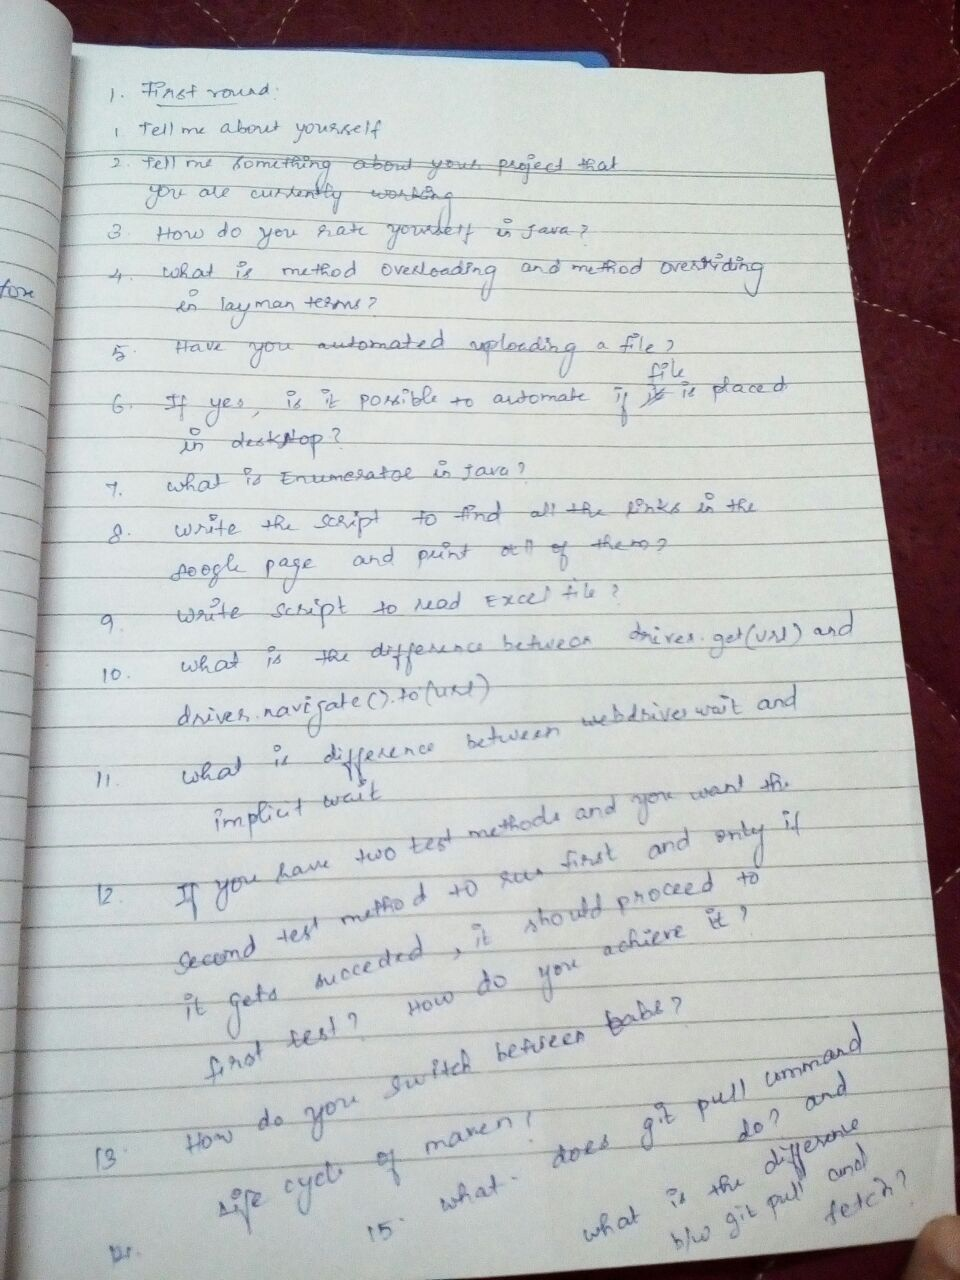 1. First round:
1. Tell me about yourself
2. Tell me something about your project that
you are currently working
3. How do you rate yourself in Java?
4. What is method overloading and method overriding
in layman terms?
5. Have you automated uploading a file?
file
6. If yes, is it possible to automate if is placed
in desktop?
7. What is Enumerator in Java?
8. Write the script to find all the links in the
google page and print all of them?
9. Write script to read Excel file?
10. What is the difference between driver.get(url) and
driver.navigate().to(url)
11. What is difference between webdriver wait and
implicit wait
12. If you have two test methods and you want the
second test method to run first and only if
it gets succeeded, it should proceed to
first test? How do you achieve it?
13. How do you switch between tabs?
14. Life cycle of maven?
15. What does git pull command
do? and
what is the difference
b/w git pull and
fetch?